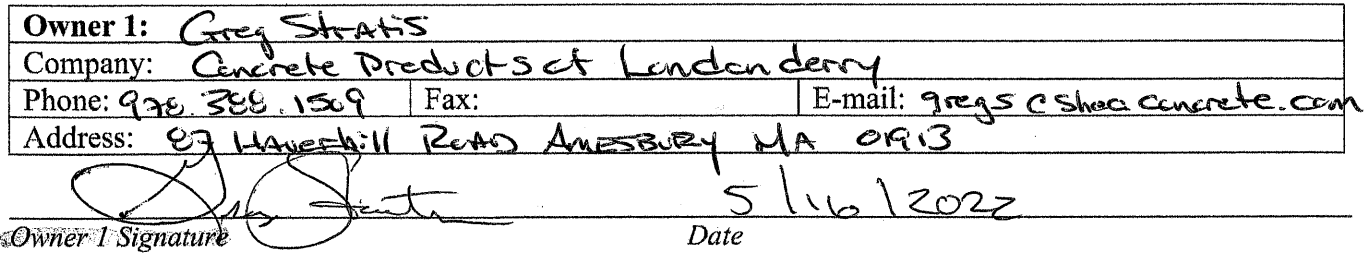 Owner 1: Greg Stratis
Company: Concrete Products of Londonderry
Phone: 978.388.1509 Fax: E-mail: gregs@sheaconcrete.com
Address: 87 Haverhill Road Amesbury MA 01913
5/16/2022
Owner 1 Signature Date